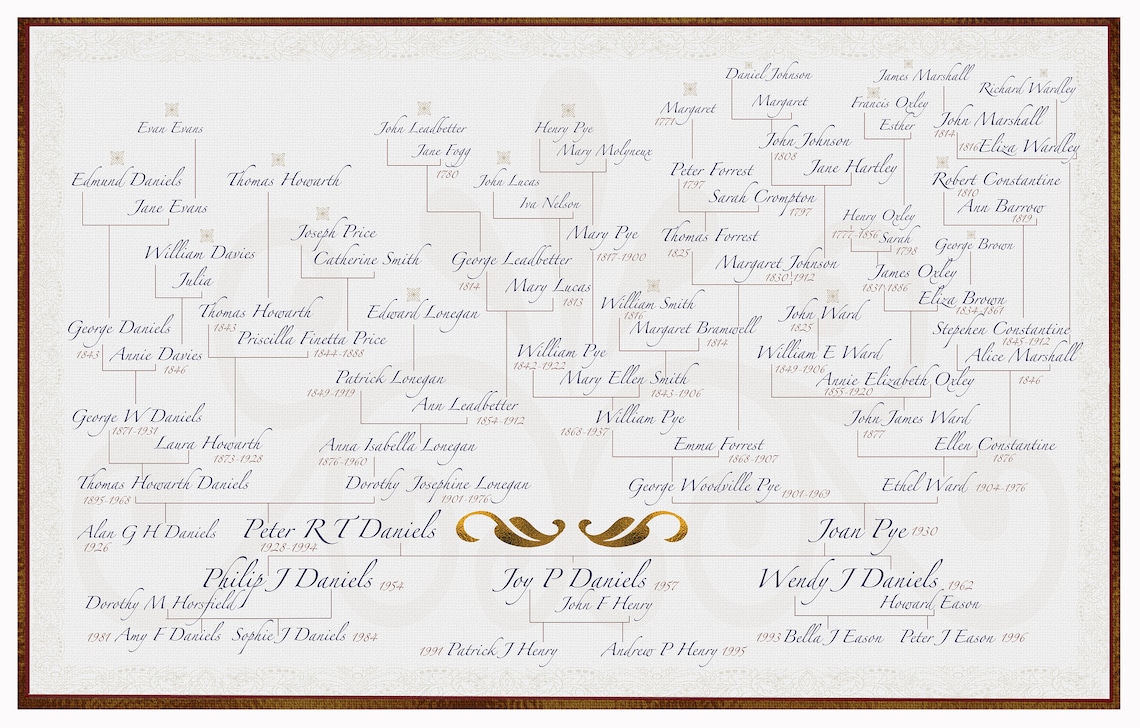 Daniel Johnson
James Marshall
Richard Wardley
Margaret
1771
Margaret
Francis Oxley
Esther
John Marshall
1814
1816 Eliza Wardley
Evan Evans
John Leadbetter
Jane Fogg
1780
Henry Pye
Mary Molyneux
John Johnson
1808
Jane Hartley
Edmund Daniels
Jane Evans
Thomas Howarth
John Lucas
Iva Nelson
Peter Forrest
1797
Sarah Crompton
1797
Robert Constantine
1810
Ann Barrow
1819
Henry Oxley
1777-1856
Sarah
1798
George Brown
William Davies
Julia
Joseph Price
Catherine Smith
George Leadbetter
1814
Mary Lucas
1813
Mary Pye
1817-1900
Thomas Forrest
1825
Margaret Johnson
1830-1912
James Oxley
1831-1886
Eliza Brown
1834-1861
George Daniels
1843
Annie Davies
1846
Thomas Howarth
1843
Priscilla Finetta Price
1844-1888
Edward Lonegan
William Smith
1816
Margaret Bramwell
1814
John Ward
1825
Stepehen Constantine
1845-1912
Alice Marshall
1846
Patrick Lonegan
1849-1919
Ann Leadbetter
1854-1912
William Pye
1842-1922
Mary Ellen Smith
1843-1906
William E Ward
1849-1906
Annie Elizabeth Oxley
1855-1920
George W Daniels
1871-1931
Laura Howarth
1873-1928
Anna Isabella Lonegan
1876-1960
William Pye
1868-1937
Emma Forrest
1868-1907
John James Ward
1877
Ellen Constantine
1876
Thomas Howarth Daniels
1895-1968
Dorothy Josephine Lonegan
1901-1976
George Woodville Pye 1901-1969
Ethel Ward 1904-1976
Alan G H Daniels
1926
Peter R T Daniels
1928-1994
Joan Pye 1930
Philip J Daniels 1954
Joy P Daniels 1957
Wendy J Daniels 1962
Dorothy M Horsfield
John F Henry
Howard Eason
1981 Amy F Daniels
Sophie J Daniels 1984
1991 Patrick J Henry
Andrew P Henry 1995
1993 Bella J Eason
Peter J Eason 1996